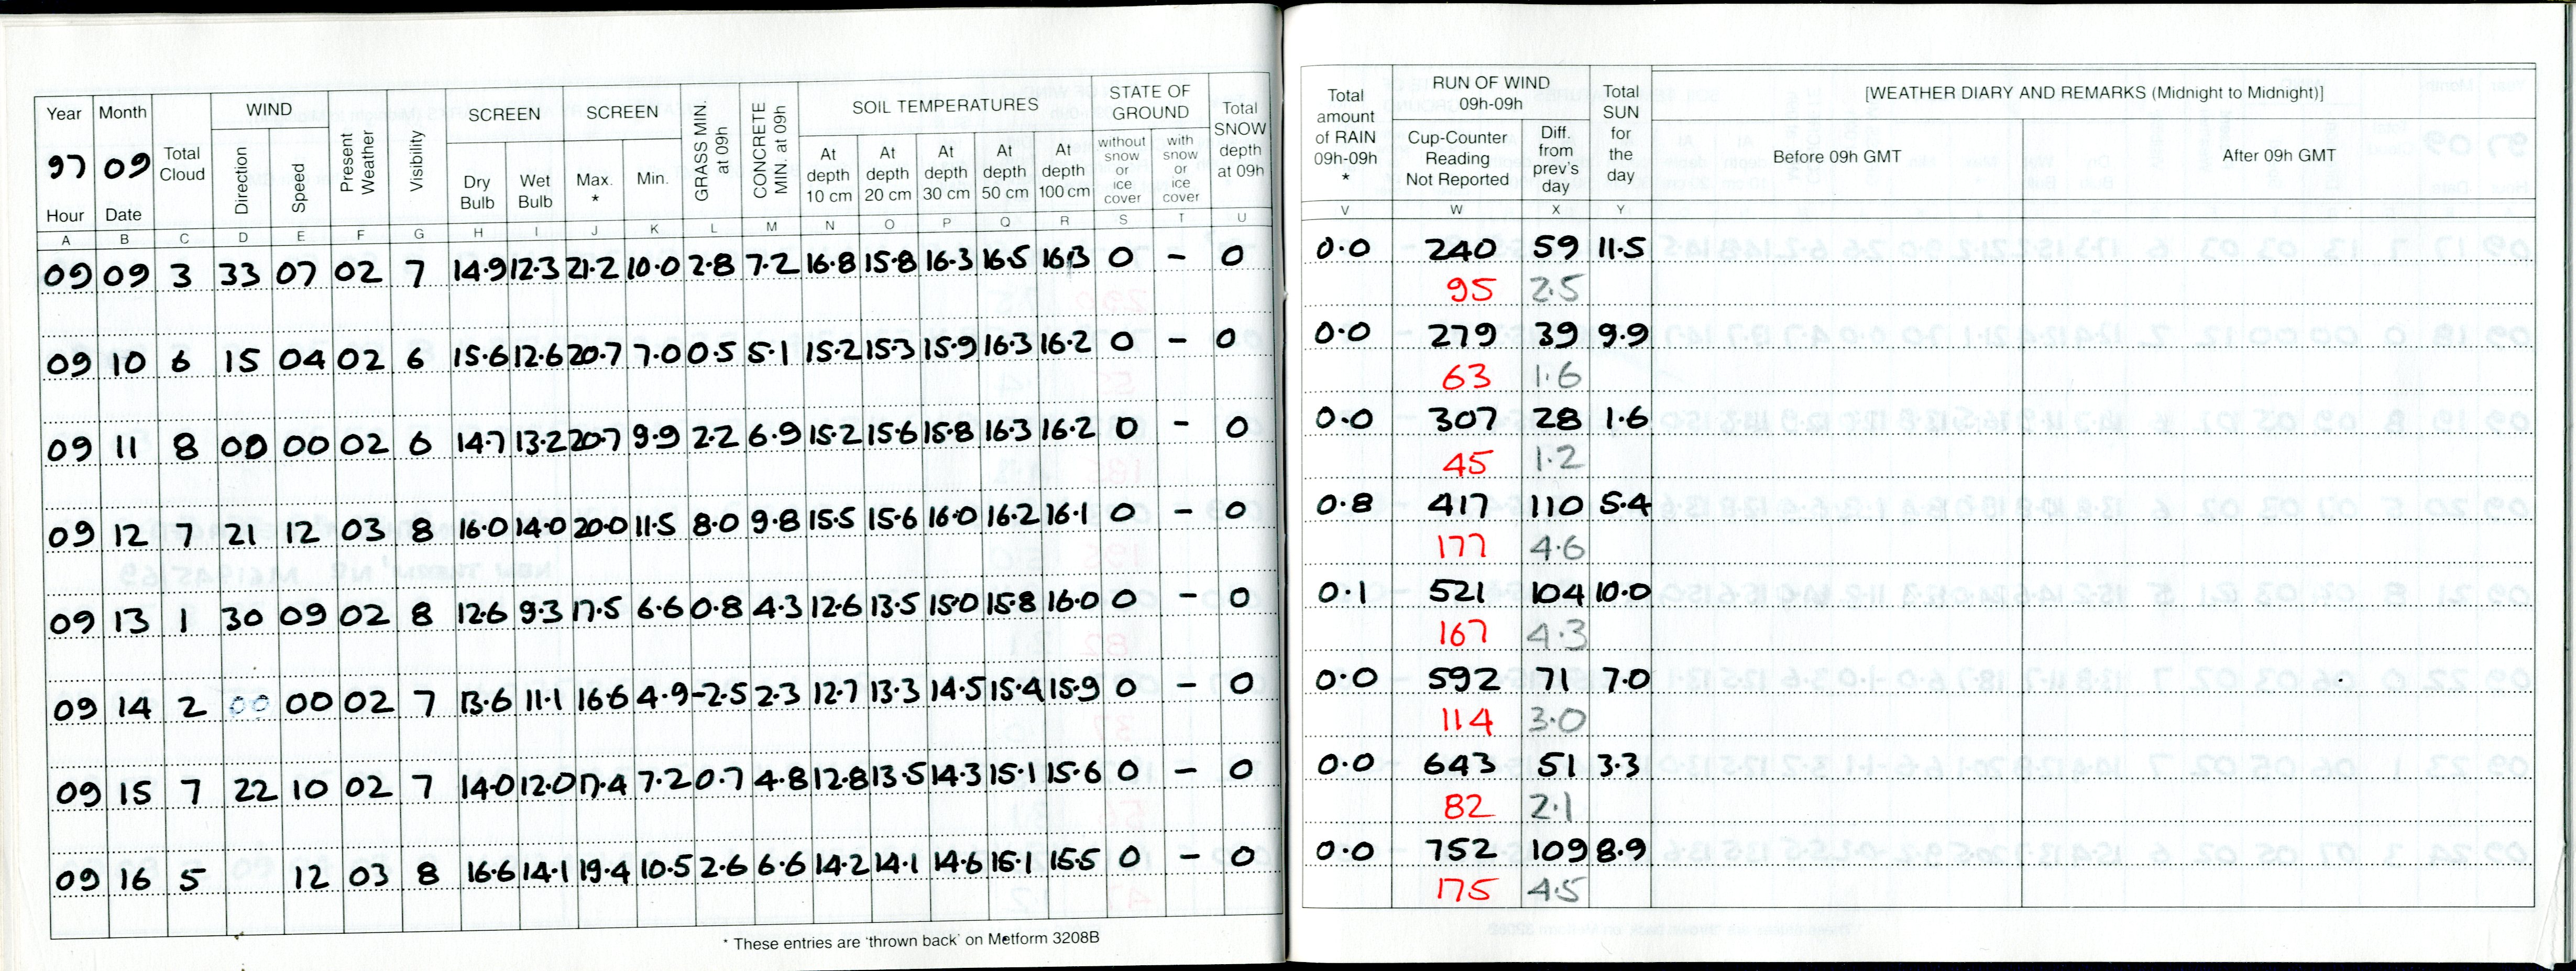 Year Month WIND SCREEN SCREEN GRASS MIN. at 09h CONCRETE MIN. at 09h SOIL TEMPERATURES STATE OF GROUND Total SNOW depth at 09h
97 09 Total Cloud Direction Speed Present Weather Visibility Dry Bulb Wet Bulb Max. * Min. At depth 10 cm At depth 20 cm At depth 30 cm At depth 50 cm At depth 100 cm without snow or ice cover with snow or ice cover
Hour Date
A B C D E F G H I J K L M N O P Q R S T U
09 09 3 33 07 02 7 14.9 12.3 21.2 10.0 2.8 7.2 16.8 15.8 16.3 16.5 16.3 0 - 0
09 10 6 15 04 02 6 15.6 12.6 20.7 7.0 0.5 5.1 15.2 15.3 15.9 16.3 16.2 0 - 0
09 11 8 00 00 02 6 14.7 13.2 20.7 9.9 2.2 6.9 15.2 15.6 15.8 16.3 16.2 0 - 0
09 12 7 21 12 03 8 16.0 14.0 20.0 11.5 8.0 9.8 15.5 15.6 16.0 16.2 16.1 0 - 0
09 13 1 30 09 02 8 12.6 9.3 17.5 6.6 0.8 4.3 12.6 13.5 15.0 15.8 16.0 0 - 0
09 14 2 00 00 02 7 13.6 11.1 16.6 4.9 -2.5 2.3 12.7 13.3 14.5 15.4 15.9 0 - 0
09 15 7 22 10 02 7 14.0 12.0 17.4 7.2 0.7 4.8 12.8 13.5 14.3 15.1 15.6 0 - 0
09 16 5 12 03 8 16.6 14.1 19.4 10.5 2.6 6.6 14.2 14.1 14.6 15.1 15.5 0 - 0
* These entries are 'thrown back' on Metform 3208B
Total amount of RAIN 09h-09h * RUN OF WIND 09h-09h Total SUN for the day [WEATHER DIARY AND REMARKS (Midnight to Midnight)]
Cup-Counter Reading Not Reported Diff. from prev's day Before 09h GMT After 09h GMT
V W X Y
0.0 240 59 11.5
95 2.5
0.0 279 39 9.9
63 1.6
0.0 307 28 1.6
45 1.2
0.8 417 110 5.4
177 4.6
0.1 521 104 10.0
167 4.3
0.0 592 71 7.0
114 3.0
0.0 643 51 3.3
82 2.1
0.0 752 109 8.9
175 4.5